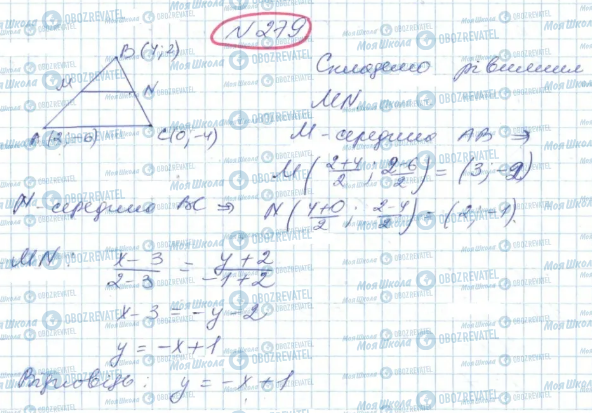 N 279
B(4; 2)
M N
A(2; -6) C(0; -4)
Складемо рівняння
MN.
M - середина AB ⇒
M(2+4/2; 2-6/2) = (3; -2)
N - середина BC ⇒ N(4+0/2; 2-4/2) = (2; -1).
MN: x-3/2-3 = y+2/-1+2
x-3 = -y-2
y = -x+1
Відповідь: y = -x+1
Моя Школа
OBOZREVATEL